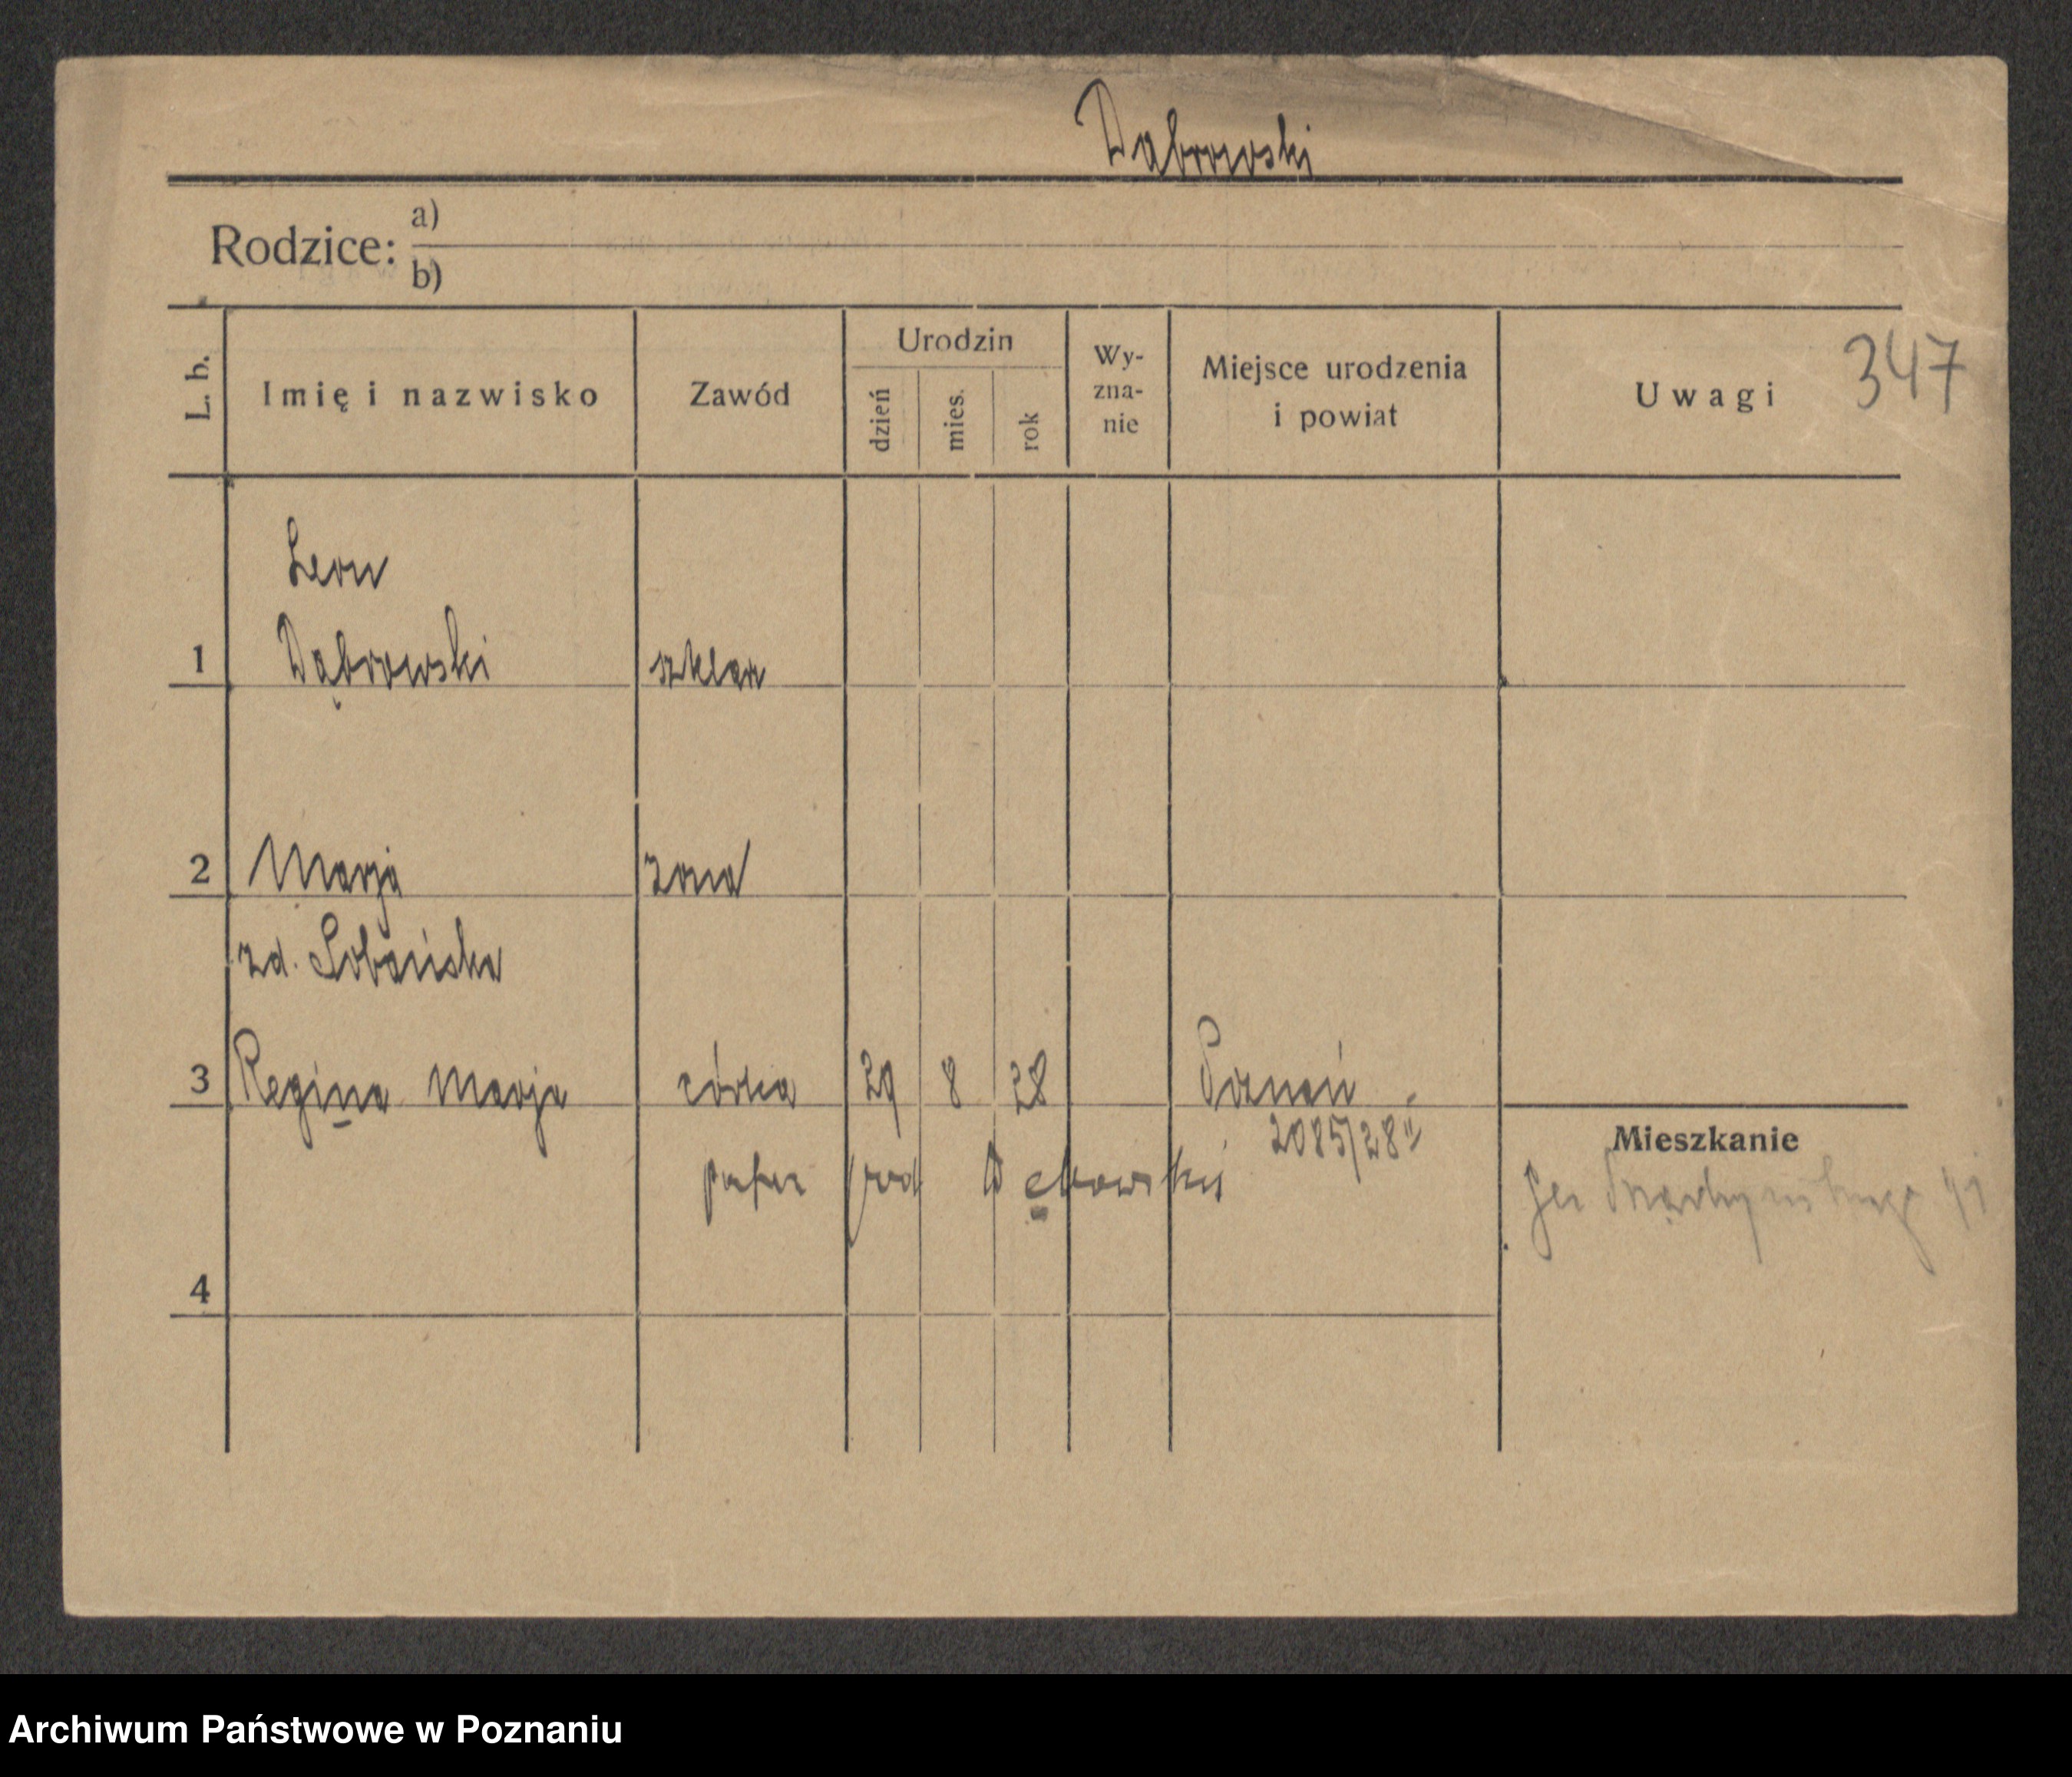 Dąbrowski
Rodzice:
a)
b)
L. b.
Imię i nazwisko
Zawód
Urodzin
dzień
mies.
rok
Wy-
zna-
nie
Miejsce urodzenia
i powiat
Uwagi
347
Leon
1 Dąbrowski szklarz
2 Marja żona
zd. Sobańska
3 Regina Marja córka 29 8 28 Poznań
2085/28
pod
Mieszkanie
4
Archiwum Państwowe w Poznaniu